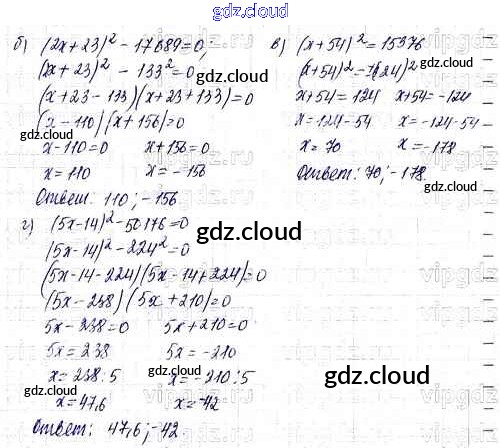 gdz.cloud
б) (2x+23)² - 17689=0,
(x+23)² - 133²=0
(x+23-133)(x+23+133)=0
(x-110)(x+156)=0
x-110=0 x+156=0
x=110 x=-156
Ответ: 110; -156
в) (x+54)²=15376
(x+54)²=(124)²
x+54=124 x+54=-124
x=124-54 x=-124-54
x=70 x=-178
Ответ: 70; -178.
г) (5x-14)²-50176=0
(5x-14)²-224²=0
(5x-14-224)(5x-14+224)=0
(5x-238)(5x+210)=0
5x-238=0 5x+210=0
5x=238 5x=-210
x=238:5 x=-210:5
x=47,6 x=-42
Ответ: 47,6; -42
gdz.cloud
gdz.cloud
gdz.cloud
vipgdz.ru